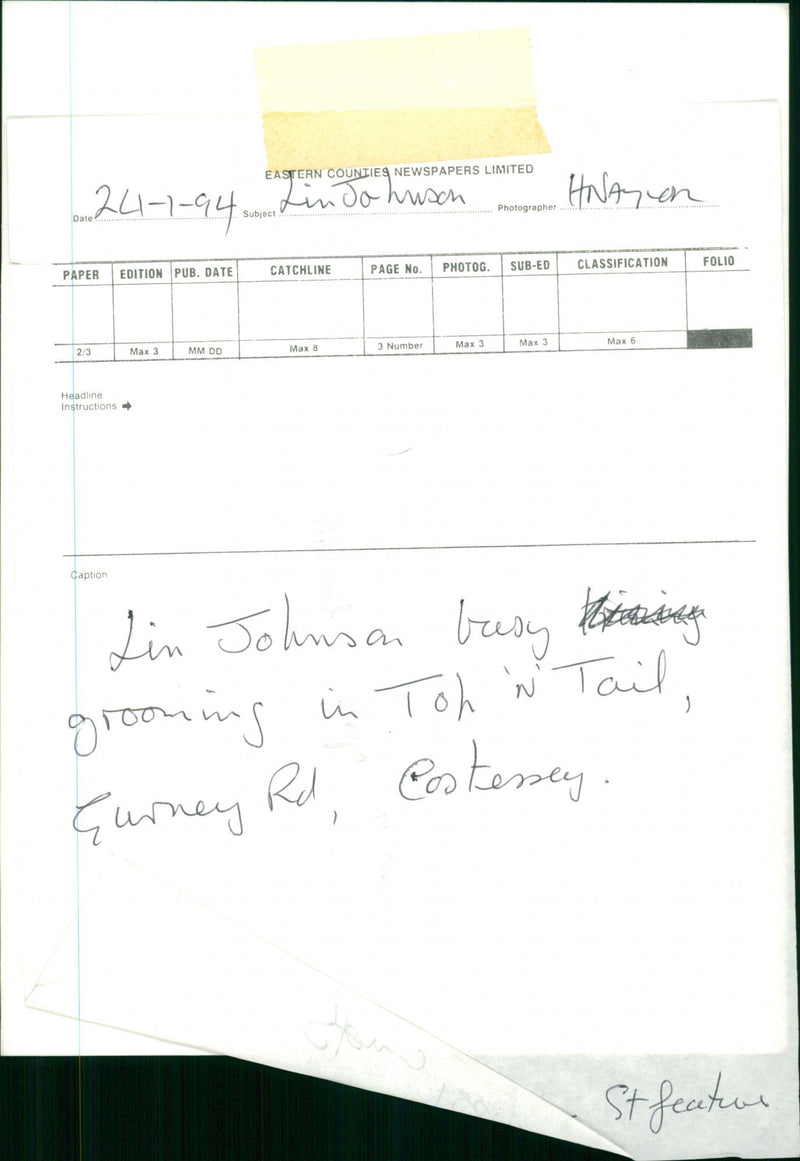 EASTERN COUNTIES NEWSPAPERS LIMITED
Date 24-1-94 Subject Lin Johnson Photographer HNAYLOR
PAPER EDITION PUB. DATE CATCHLINE PAGE No. PHOTOG. SUB-ED CLASSIFICATION FOLIO
2/3 Max 3 MM DD Max 8 3 Number Max 3 Max 3 Max 6
Headline
Instructions ➔
Caption
Lin Johnson busy
grooming in Top 'N' Tail,
Gurney Rd, Costessey.
St feature